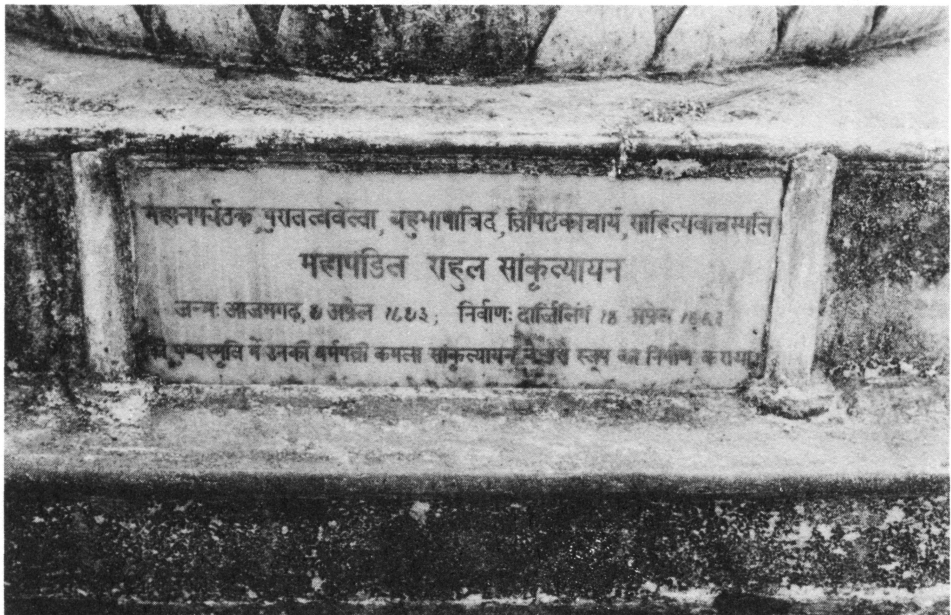 महानपर्यटक, पुरातत्ववेत्वा, बहुभाषाविद, त्रिपिटकाचार्य, साहित्यवाचस्पति
महापंडित राहुल सांकृत्यायन
जन्मः आजमगढ़, ९ अप्रेल १८९३; निर्वाणः दार्जिलिंग १४ अप्रेल १९६३
की पुण्यस्मृति में उनकी धर्मपत्नी कमला सांकृत्यायन ने इस स्तूप का निर्माण कराया।